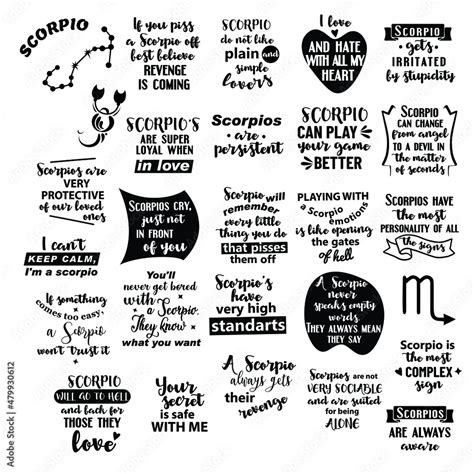 SCORPIO
If you piss
a Scorpio off
best believe
REVENGE
IS COMING
SCORPIO
do not like
plain and
simple
lovers
I love
AND HATE
WITH ALL MY
HEART
SCORPIO
gets
IRRITATED
by stupidity
SCORPIO'S
ARE SUPER
LOYAL WHEN
in love
Scorpios
are
persistent
SCORPIO
CAN PLAY
your game
BETTER
SCORPIO
CAN CHANGE
from angel
TO A DEVIL IN
the matter
of seconds
Scorpios are
VERY
PROTECTIVE
of our loved
ones
SCORPIOS CRY,
just not
IN FRONT
OF YOU
Scorpio will
remember
every little
thing you do
that pisses
them off
PLAYING WITH
a Scorpio
emotions
is like opening
the gates
of hell
SCORPIOS HAVE
the most
PERSONALITY OF ALL
the signs
I can't
KEEP CALM,
I'm a scorpio
You'll
never get bored
with
a Scorpio.
They know
what you want
Scorpio's
have
very high
standarts
A Scorpio
never
speaks empty
words.
THEY ALWAYS MEAN
THEY SAY
If something
comes too easy,
a Scorpio
won't trust it
Scorpio is
the most
COMPLEX
sign
SCORPIO
WILL GO TO HELL
and back for
THOSE THEY
love
Your
secret
is safe
WITH ME
A Scorpio
always gets
their
revenge
Scorpios are not
VERY SOCIABLE
and are suited
for being
ALONE
SCORPIOS
ARE ALWAYS
aware
Adobe Stock | #479930612
Adobe Stock